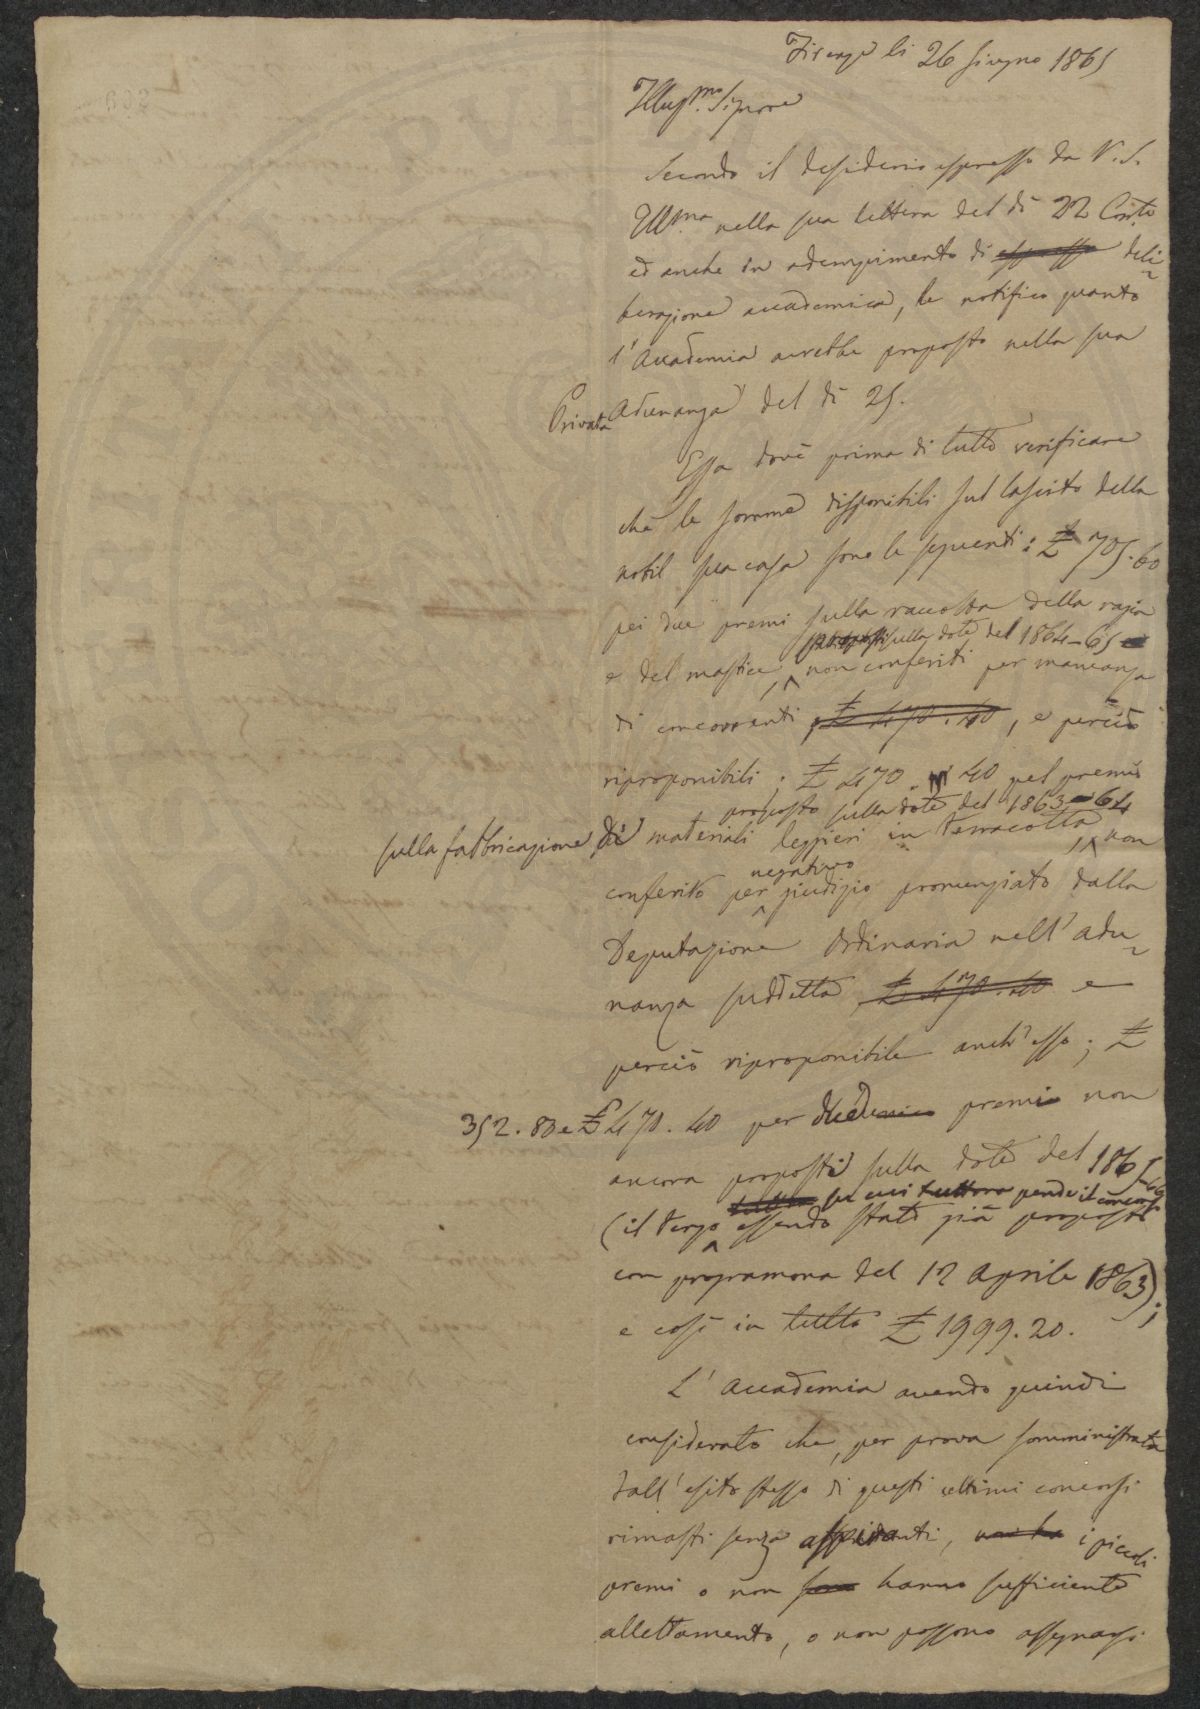 Firenze li 26 Giugno 1865
Illus.mo Signore
Secondo il desiderio espresso da V. S.
Ill.ma nella sua lettera del dì 22 Corr.te
ed anche in adempimento di espressa deli-
berazione accademica, le notifico quanto
l'Accademia avrebbe proposto nella sua
Privata Adunanza del dì 25.
Essa dovè prima di tutto verificare
che le somme disponibili sul lascito della
nobil sua casa sono le seguenti: £ 705.60
pei due premi sulla raccolta della ragia
proposti sulla dote del 1864-65
e del mastice, non conferiti per mancanza
di concorrenti, £ 470.40, e perciò
riproponibili; £ 470.40 pel premio
proposto sulla dote del 1863-64
sulla fabbricazione di materiali leggieri in terracotta, non
negativo
conferito per giudizio pronunziato dalla
Deputazione Ordinaria nell'adu-
nanza suddetta, £ 470.40 e
perciò riproponibile anch'esso; £
352.80 e £ 470.40 per due premi non
ancora proposti sulla dote del 1865-66
su cui tuttora pende il concorso
(il terzo essendo stato già proposto
con programma del 12 Aprile 1863);
e così in tutto £ 1999.20.
L'Accademia avendo quindi
considerato che, per prova somministrata
dall'esito stesso di questi ultimi concorsi
rimasti senza aspiranti, i piccoli
premi o non hanno sufficiente
allettamento, o non possono assegnarsi